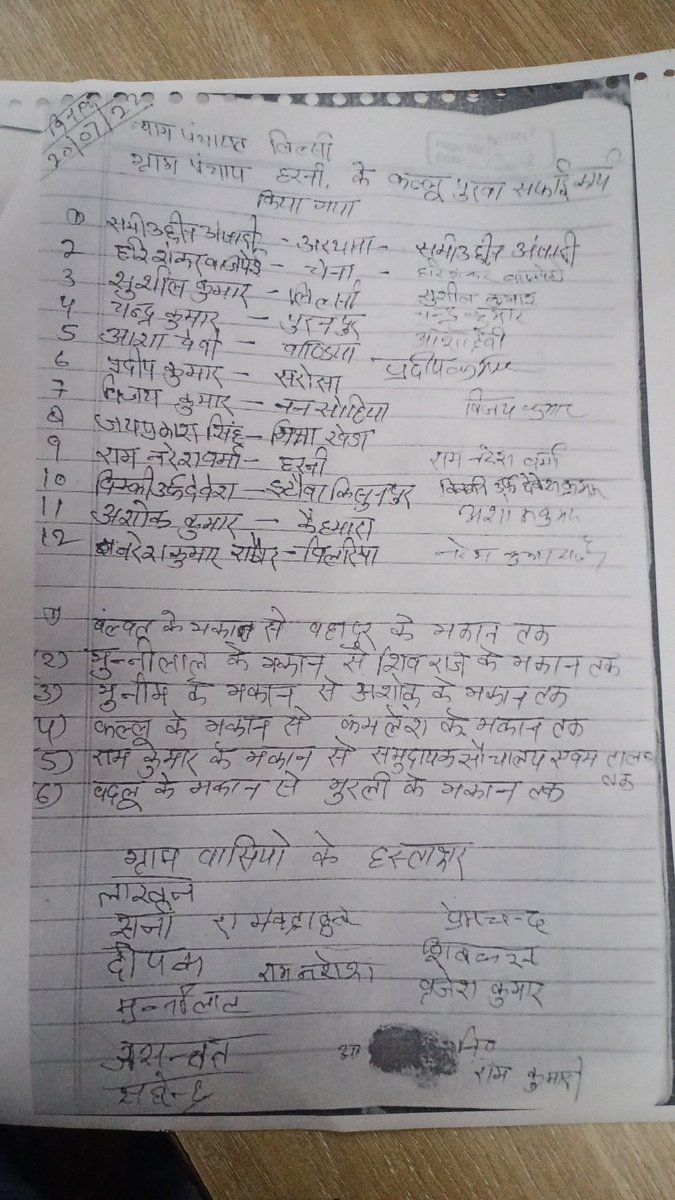 दिनांक
20/07/22
ग्राम पंचायत लिलसी
ग्राम पंचाय हरनी, के कल्लू पुरवा सफाई कार्य
किया गया
1 समीउद्दीन अंसारी - अरथाना - समीउद्दीन अंसारी
2 हरिशंकर वाजपेई - चेना - हरिशंकर वाजपेई
3 सुशील कुमार - लिलसी सुशील कुमार
4 चन्द्र कुमार - पुरनपुर चन्द्र कुमार
5 आशा देवी - आशा देवी
6 प्रदीप कुमार - सरोसा प्रदीप कुमार
7 विजय कुमार - विजय कुमार
8 जयप्रकाश सिंह - भिमा खेडा
9 राम नरेश वर्मा - हरनी राम नरेश वर्मा
10 विक्की उर्फ देवेश - इटौवा किशुनपुर विक्की उर्फ देवेश कुमार
11 अशोक कुमार - कैहमारा अशोक कुमार
12 नरेश कुमार राठौर - पिलरिया नरेश कुमार
1) बलवत के मकान से बहादुर के मकान तक
2) मुन्नीलाल के मकान से शिवराज के मकान तक
3) मुनीम के मकान से अशोक के मकान तक
4) कल्लू के मकान से कमलेश के मकान तक
5) राम कुमार के मकान से समुदायक सौचालय एवम तालाब
तक
6) बदलू के मकान से मुरली के मकान तक
ग्राम वासियो के हस्ताक्षर
लाखन
प्रेमचन्द
दीपक राम नरेश शिवकरन
मुन्नीलाल बृजेश कुमार
जसन्वत
राम कुमारी